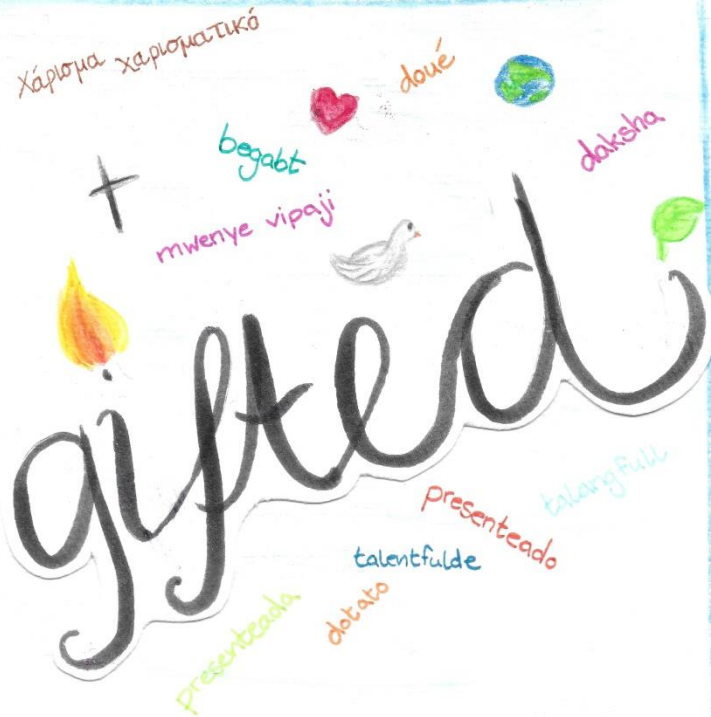 χάρισμα χαρισματικό
doué
begabt
daksha
mwenye vipaji
gifted
presenteado
talangfull
talentfulde
dotato
presenteada